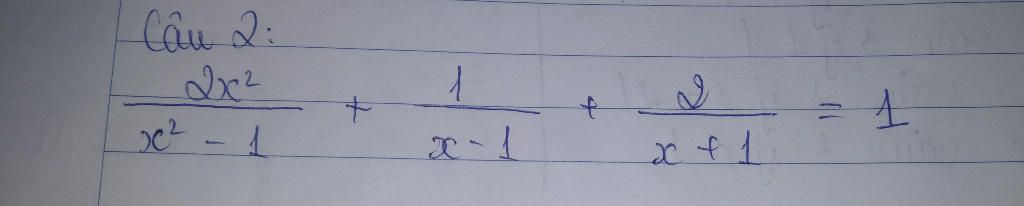 Câu 2:
2x² / (x² - 1) + 1 / (x - 1) + 2 / (x + 1) = 1